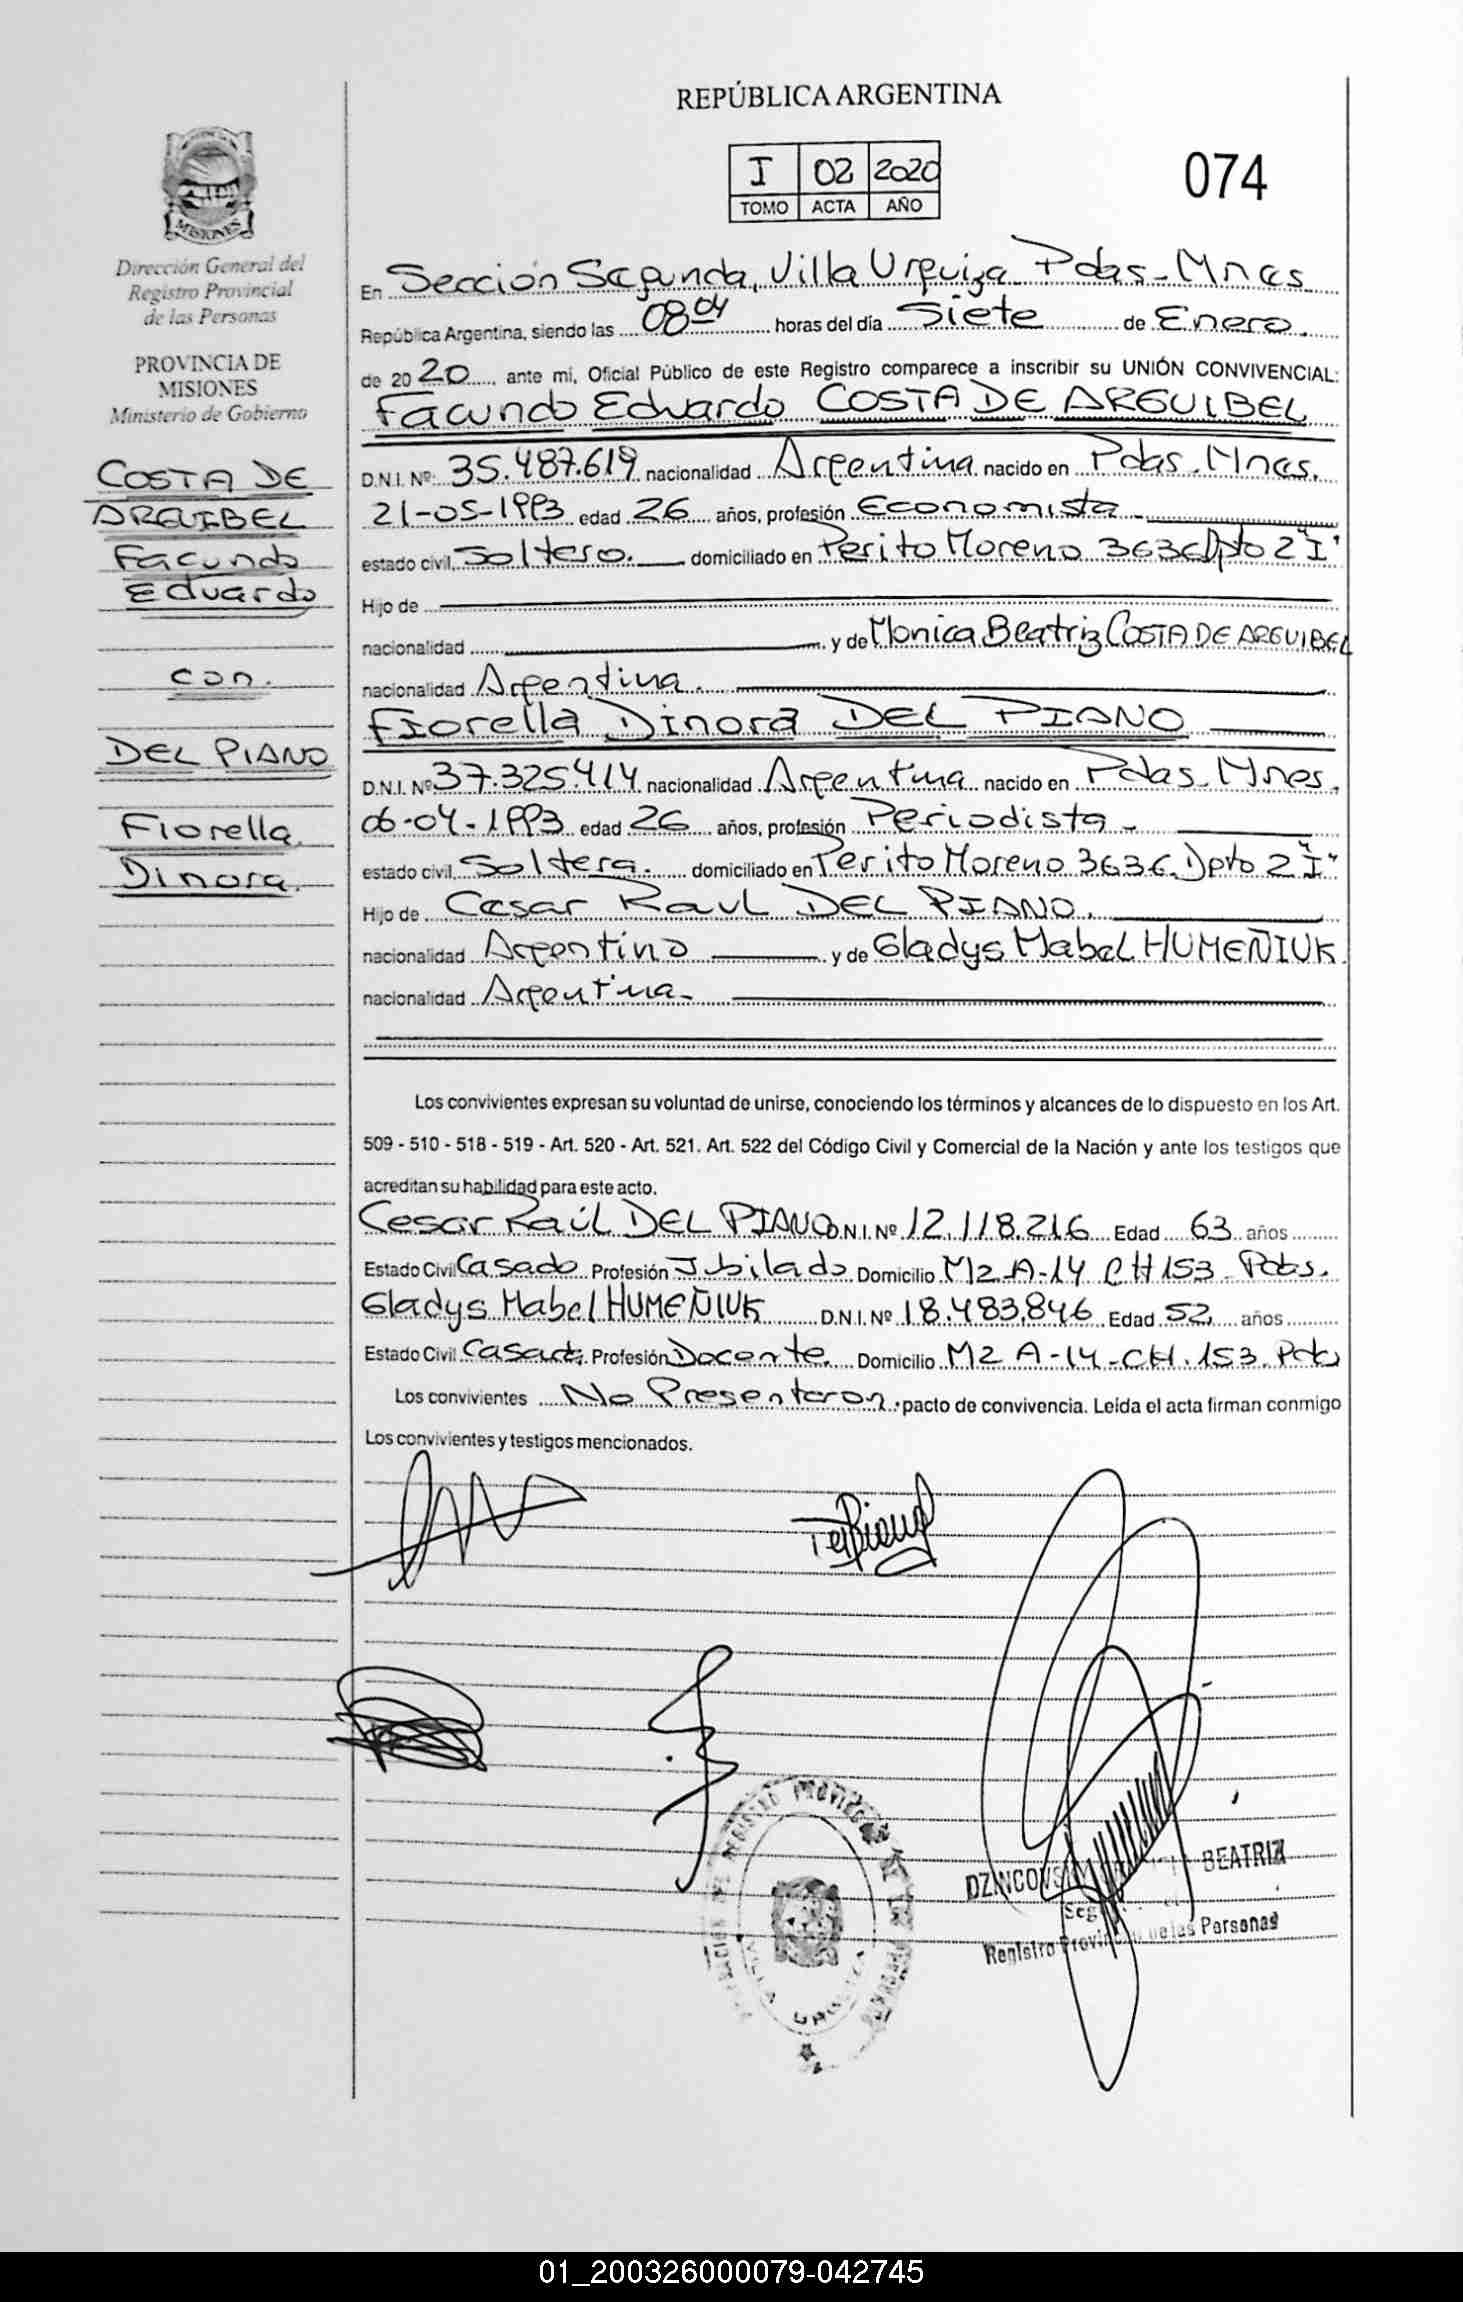 REPÚBLICA ARGENTINA
I 02 2020
TOMO ACTA AÑO
074
MISIONES
Dirección General del
Registro Provincial
de las Personas
PROVINCIA DE
MISIONES
Ministerio de Gobierno
COSTA DE
ARGUIBEL
Facundo
Eduardo
con.
DEL PIANO
Fiorella
Dinora.
En Sección Segunda, Villa Urquiza Pdas-Mnes
República Argentina, siendo las 08 04 horas del día Siete de Enero.
de 2020 ante mi, Oficial Público de este Registro comparece a inscribir su UNIÓN CONVIVENCIAL:
Facundo Eduardo COSTA DE ARGUIBEL
D.N.I. Nº: 35.487.619 nacionalidad Argentina nacido en Pdas. Mnes.
21-05-1993 edad 26 años, profesión Economista
estado civil, Soltero. domiciliado en Perito Moreno 3636 Dpto 2 "I"
Hijo de
nacionalidad y de Monica Beatriz COSTA DE ARGUIBEL
nacionalidad Argentina.
Fiorella Dinora DEL PIANO
D.N.I. Nº 37.325.414 nacionalidad Argentina nacido en Pdas. Mnes.
06-04-1993 edad 26 años, profesión Periodista-
estado civil, Soltera. domiciliado en Perito Moreno 3636. Dpto 2 "I"
Hijo de Cesar Raul DEL PIANO.
nacionalidad Argentino y de Gladys Mabel HUMEÑIUK.
nacionalidad Argentina-
Los convivientes expresan su voluntad de unirse, conociendo los términos y alcances de lo dispuesto en los Art.
509 - 510 - 518 - 519 - Art. 520 - Art. 521. Art. 522 del Código Civil y Comercial de la Nación y ante los testigos que
acreditan su habilidad para este acto.
Cesar Raúl DEL PIANO D.N.I. Nº 12.118.216 Edad 63 años
Estado Civil Casado Profesión Jubilado Domicilio M2 A-14 CH 153 Pdas.
Gladys Mabel HUMEÑIUK D.N.I. Nº 18.483.846 Edad 52 años
Estado Civil Casada. Profesión Docente. Domicilio M2 A-14-CH.153.
Los convivientes No Presentaron. pacto de convivencia. Leída el acta firman conmigo
Los convivientes y testigos mencionados.
BEATRIZ
Registro Provincial de las Personas
VILLA URQUIZA
01_200326000079-042745